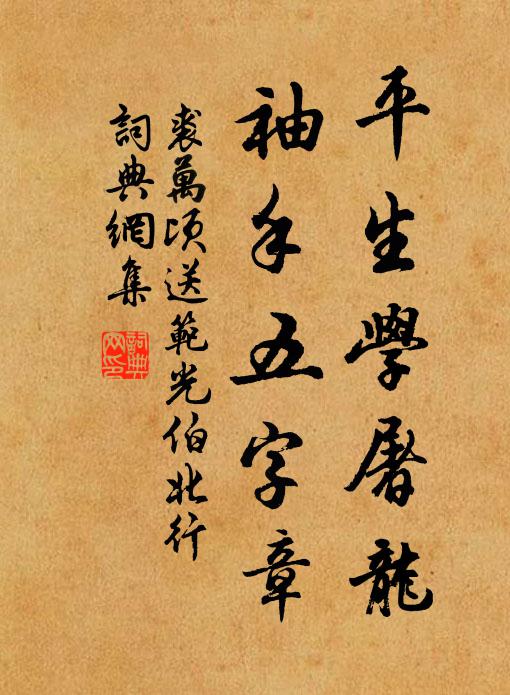 平生學屠龍
袖手五字章
裘萬頃送範光伯北行
詞典網集
詞典网印